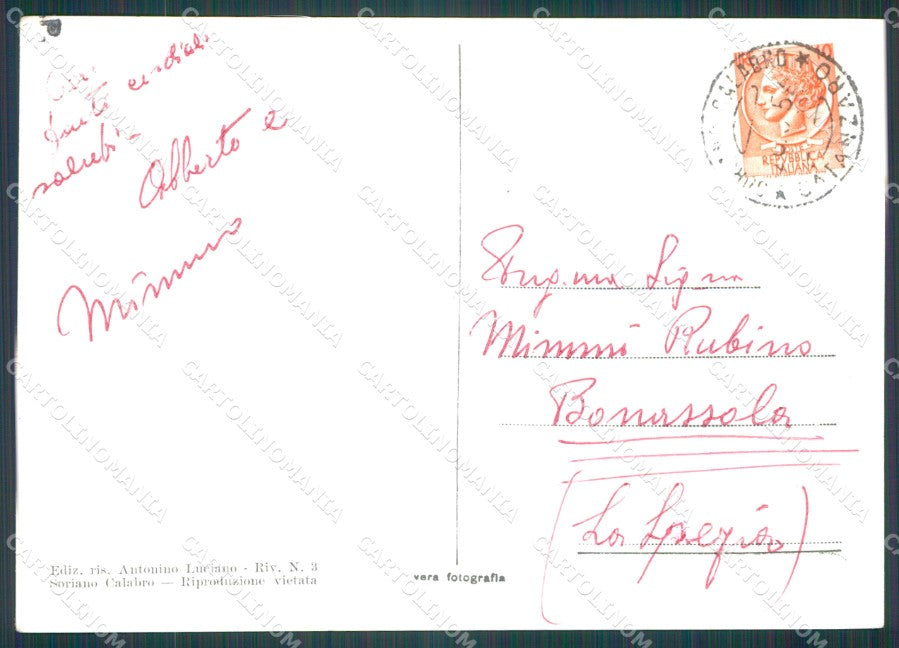 tanti cordiali
saluti
Alberto e
Mimmo
10
REPUBBLICA
ITALIANA
CALABRO ★ CATANZARO ★
Sig.na
Mimmi Rubino
Bonassola
(La Spezia)
Ediz. ris. Antonino Luciano - Riv. N. 3
Soriano Calabro — Riproduzione vietata
vera fotografia
CARTOLINOMANIA